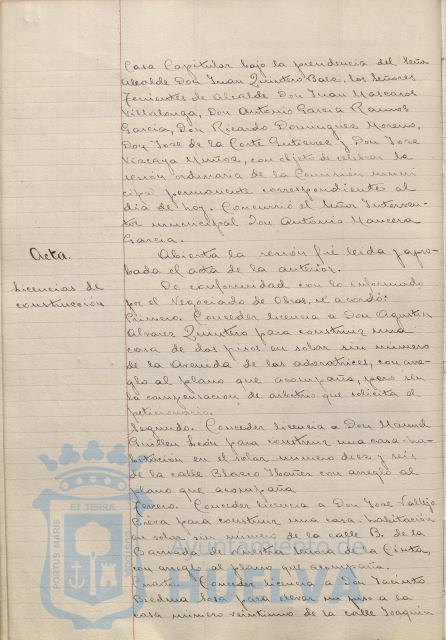 Casa Capitular bajo la presidencia del Señor
Alcalde Don Juan Quintero Baez, los Señores
Tenientes de Alcalde Don Juan Mascaros
Villalonga, Don Antonio Garcia Ramos
Garcia, Don Ricardo Dominguez Moreno,
Don Jose de la Corte Gutierrez y Don Jose
Vizcaya Muñoz, con objeto de celebrar la
sesión ordinaria de la Comisión muni
cipal permanente correspondiente al
dia de hoy. Concurrió el Señor Interven-
tor municipal Don Antonio Mancera
Garcia.
Acta.
Abierta la sesión fué leida y apro-
bada el acta de la anterior.
Licencias de
construcción
De conformidad con lo informado
por el Negociado de Obras, se acordó:
Primero. Conceder licencia a Don Agustin
Alvarez Quintero para construir una
casa de dos pisos en solar sin número
de la Avenida de las adoratrices, con arre-
glo al plano que acompaña, pero sin
la compensacion de arbitrio que solicita el
peticionario.
Segundo. Conceder licencia a Don Manuel
Guillen León para construir una casa-ha-
bitación en el solar número diez y seis
de la calle Blasco Ibañez con arreglo al
plano que acompaña.
Tercero. Conceder licencia a Don Jose Vallejo
para construir una casa-habitación
en solar sin número de la calle B. de la
Barriada de Nuestra Señora de la Cinta,
con arreglo al plano que acompaña.
Cuarto. Conceder licencia a Don Jacinto
para elevar un piso a la
casa número veintiuno de la calle Joaquin
PORTUS MARIS
ET TERRÆ
Ayuntamiento de
HUELVA